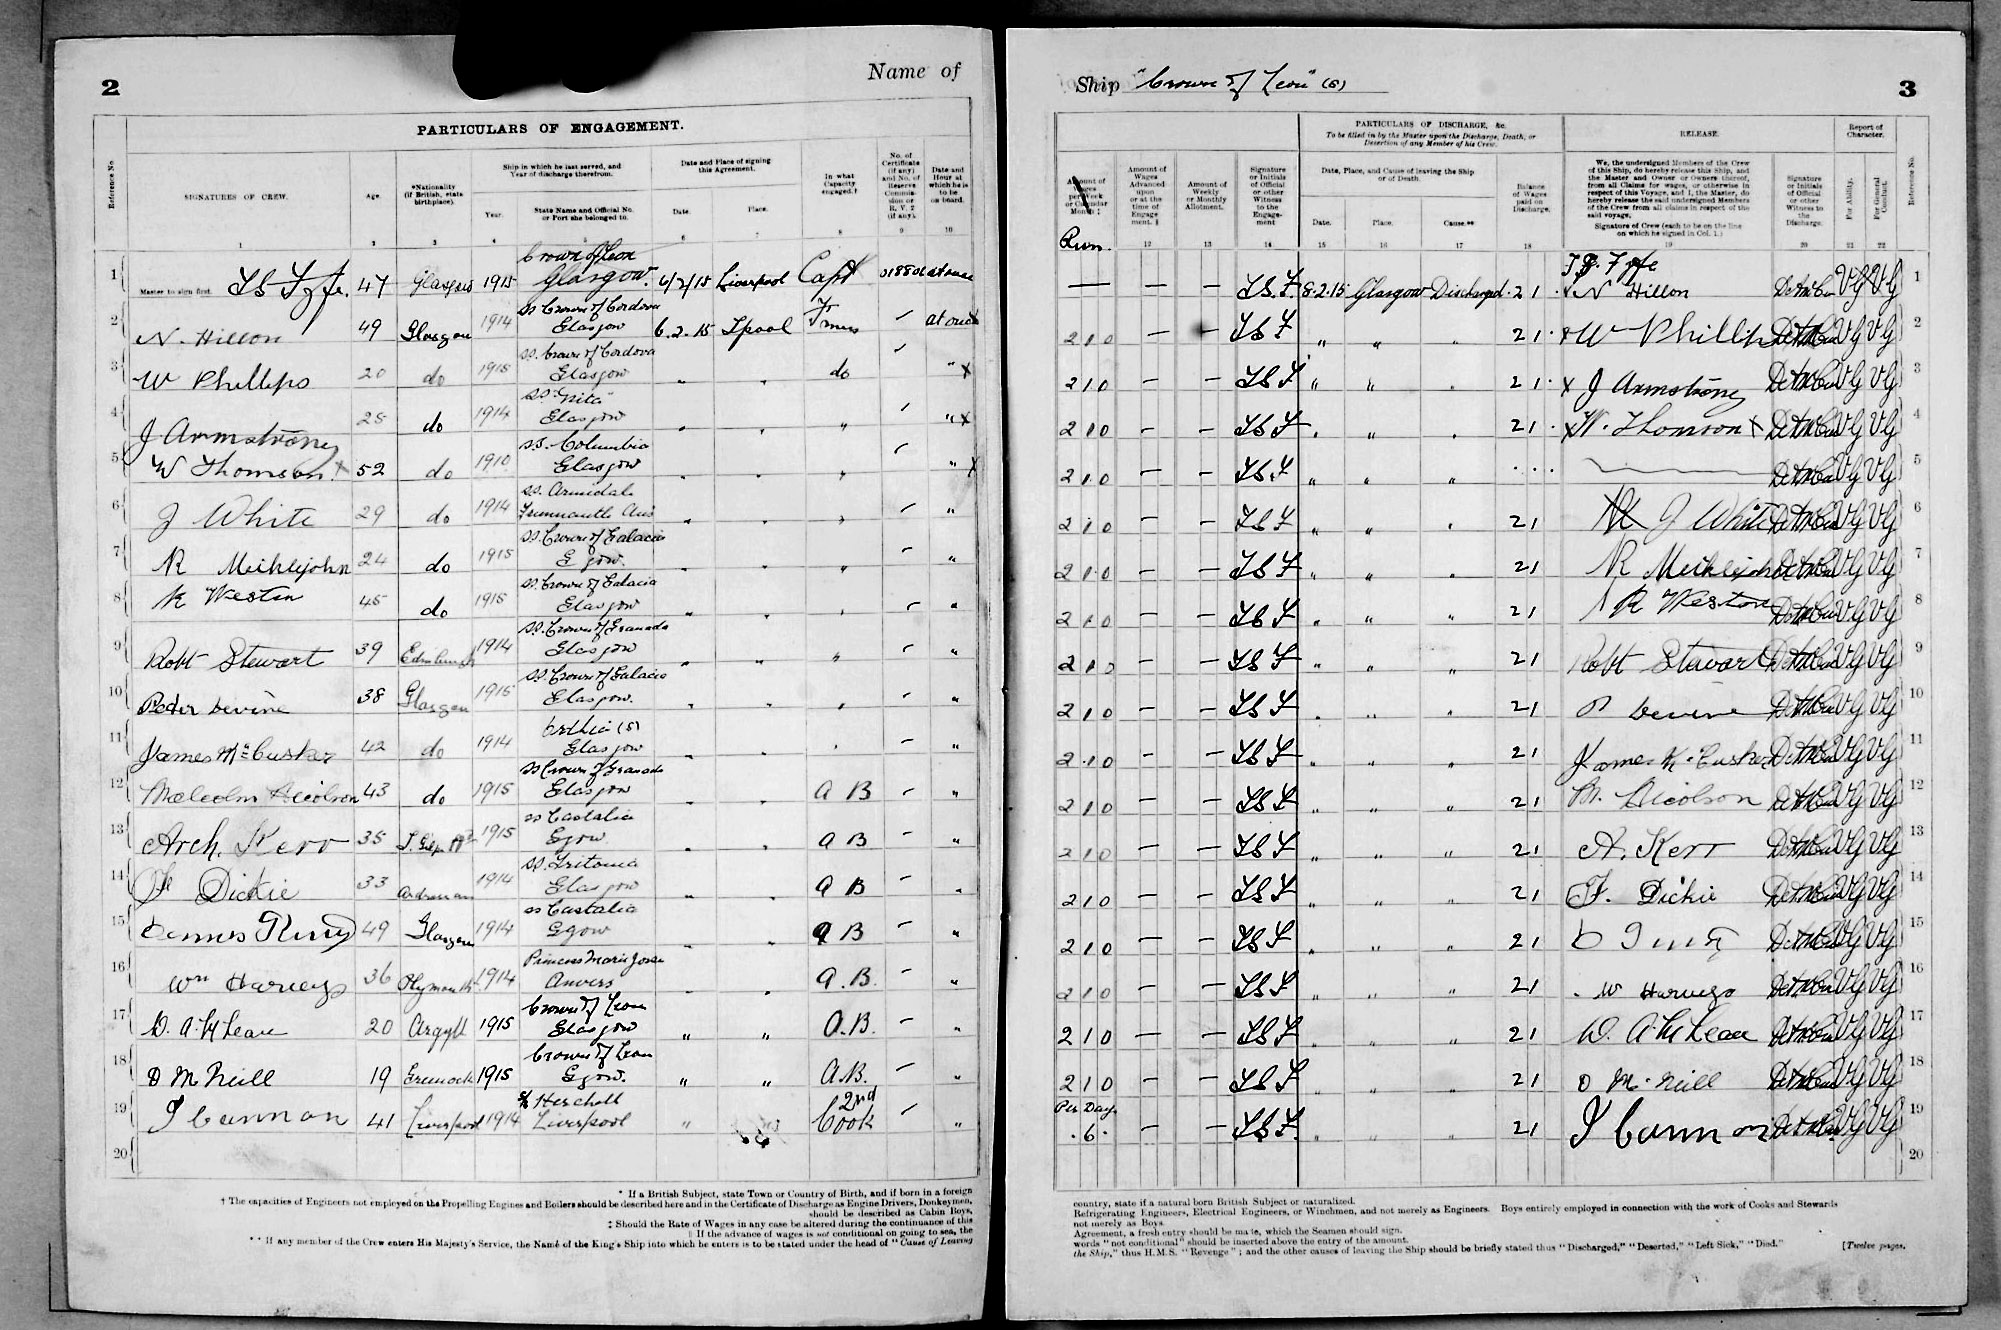 2
Name of
PARTICULARS OF ENGAGEMENT.
Reference No.
SIGNATURES OF CREW.
Age.
*Nationality (if British, state birthplace).
Ship in which he last served, and Year of discharge therefrom.
Year.
State Name and Official No. or Port she belonged to.
Date and Place of signing this Agreement.
Date.
Place.
In what Capacity engaged.†
No. of Certificate (if any) and No. of Reserve Commission or R. V. 2 (if any).
Date and Hour at which he is to be on board.
1 2 3 4 5 6 7 8 9 10
Crown of Leon
1 Master to sign first. 47 Glasgow 1915 Glasgow. 6/2/15 Liverpool Capt at once
ss Crown of Cordova
2 N. Hillon 49 Glasgow 1914 Glasgow 6.2.15 Lpool at once
ss. Crown of Cordova
3 W Phillips 20 do 1915 Glasgow " " do " x
ss. "Nita"
4 J Armstrong 25 do 1914 Glasgow " " " " x
ss. Columbia
5 W Thomson x 52 do 1910 Glasgow " " " " x
ss. Armidale
6 J White 29 do 1914 " " " "
ss Crown of Galacia
7 R Meiklejohn 24 do 1915 G gow. " " " "
ss Crown of Galacia
8 R Weston 45 do 1915 Glasgow " " " "
ss. Crown of Granada
9 Robt Stewart 39 Edinburgh 1914 Glasgow " " " "
ss. Crown of Galacia
10 Peter Devine 38 Glasgow 1915 Glasgow. " " " "
(s)
11 James McCusker 42 do 1914 Glasgow " " " "
ss Crown of Granada
12 Malcolm Nicolson 43 do 1915 Glasgow " " A B "
ss Castalia
13 Arch. Kerr 35 1915 Ggow " " A B "
ss. Tritonia
14 F Dickie 33 1914 Glasgow " " A B "
ss Castalia
15 49 Glasgow 1914 Ggow " " A B "
16 Wm Harveys 36 Plymouth 1914 Anvers " " A.B. "
Crown of Leon
17 D. A. McLean 20 Argyll 1915 Glasgow " " A.B. "
Crown of Leon
18 D McNeill 19 Greenock 1915 Ggow. " " A.B. "
Herschell 2nd
19 J Cannon 41 Liverpool 1914 Liverpool " Cook "
20
* If a British Subject, state Town or Country of Birth, and if born in a foreign
† The capacities of Engineers not employed on the Propelling Engines and Boilers should be described here and in the Certificate of Discharge as Engine Drivers, Donkeymen,
should be described as Cabin Boys,
‡ Should the Rate of Wages in any case be altered during the continuance of this
If the advance of wages is not conditional on going to sea, the
** If any member of the Crew enters His Majesty's Service, the Name of the King's Ship into which he enters is to be stated under the head of "Cause of Leaving
Ship "Crown of Leon" (s)
3
PARTICULARS OF DISCHARGE, &c.
To be filled in by the Master upon the Discharge, Death, or Desertion of any Member of his Crew.
RELEASE.
Report of Character.
Amount of Wages per Week or Calendar Month ‡
Run.
Amount of Wages Advanced upon or at the time of Engagement. §
Amount of Weekly or Monthly Allotment.
Signature or Initials of Official or other Witness to the Engagement
Date, Place, and Cause of leaving the Ship or of Death.
Date.
Place.
Cause.**
Balance of Wages paid on Discharge.
We, the undersigned Members of the Crew of this Ship, do hereby release this Ship, and the Master and Owner or Owners thereof, from all Claims for wages, or otherwise in respect of this Voyage, and I, the Master, do hereby release the said undersigned Members of the Crew from all claims in respect of the said voyage.
Signature of Crew (each to be on the line on which he signed in Col. 1.)
Signature or Initials of Official or other Witness to the Discharge.
For Ability.
For General Conduct.
Reference No.
12 13 14 15 16 17 18 19 20 21 22
— — — 8.2.15 Glasgow Discharged 21 x N Hillon VG VG 1
210 — — " " " 21 x W Phillips VG VG 2
210 — — " " " 21 x J Armstrong VG VG 3
210 — — " " " 21 x W. Thomson x VG VG 4
210 — — " " " VG VG 5
210 — — " " " 21 J White VG VG 6
210 — — " " " 21 R Meiklejohn VG VG 7
210 — — " " " 21 R Weston VG VG 8
210 — — " " " 21 Robt Stewart VG VG 9
210 — — " " " 21 P Devine VG VG 10
210 — — " " " 21 James McCusker VG VG 11
210 — — " " " 21 M. Nicolson VG VG 12
210 — — " " " 21 A. Kerr VG VG 13
210 — — " " " 21 F. Dickie VG VG 14
210 — — " " " 21 VG VG 15
210 — — " " " 21 W Harveys VG VG 16
210 — — " " " 21 D. A. McLean VG VG 17
210 — — " " " 21 D McNeill VG VG 18
Per Day
.6. — — " " " 21 J Cannon VG VG 19
20
country, state if a natural born British Subject or naturalized.
Refrigerating Engineers, Electrical Engineers, or Winchmen, and not merely as Engineers. Boys entirely employed in connection with the work of Cooks and Stewards
not merely as Boys.
Agreement, a fresh entry should be made, which the Seamen should sign.
words "not conditional" should be inserted above the entry of the amount.
the Ship," thus H.M.S. "Revenge"; and the other causes of leaving the Ship should be briefly stated thus "Discharged," "Deserted," "Left Sick," "Died."
[Twelve pages.